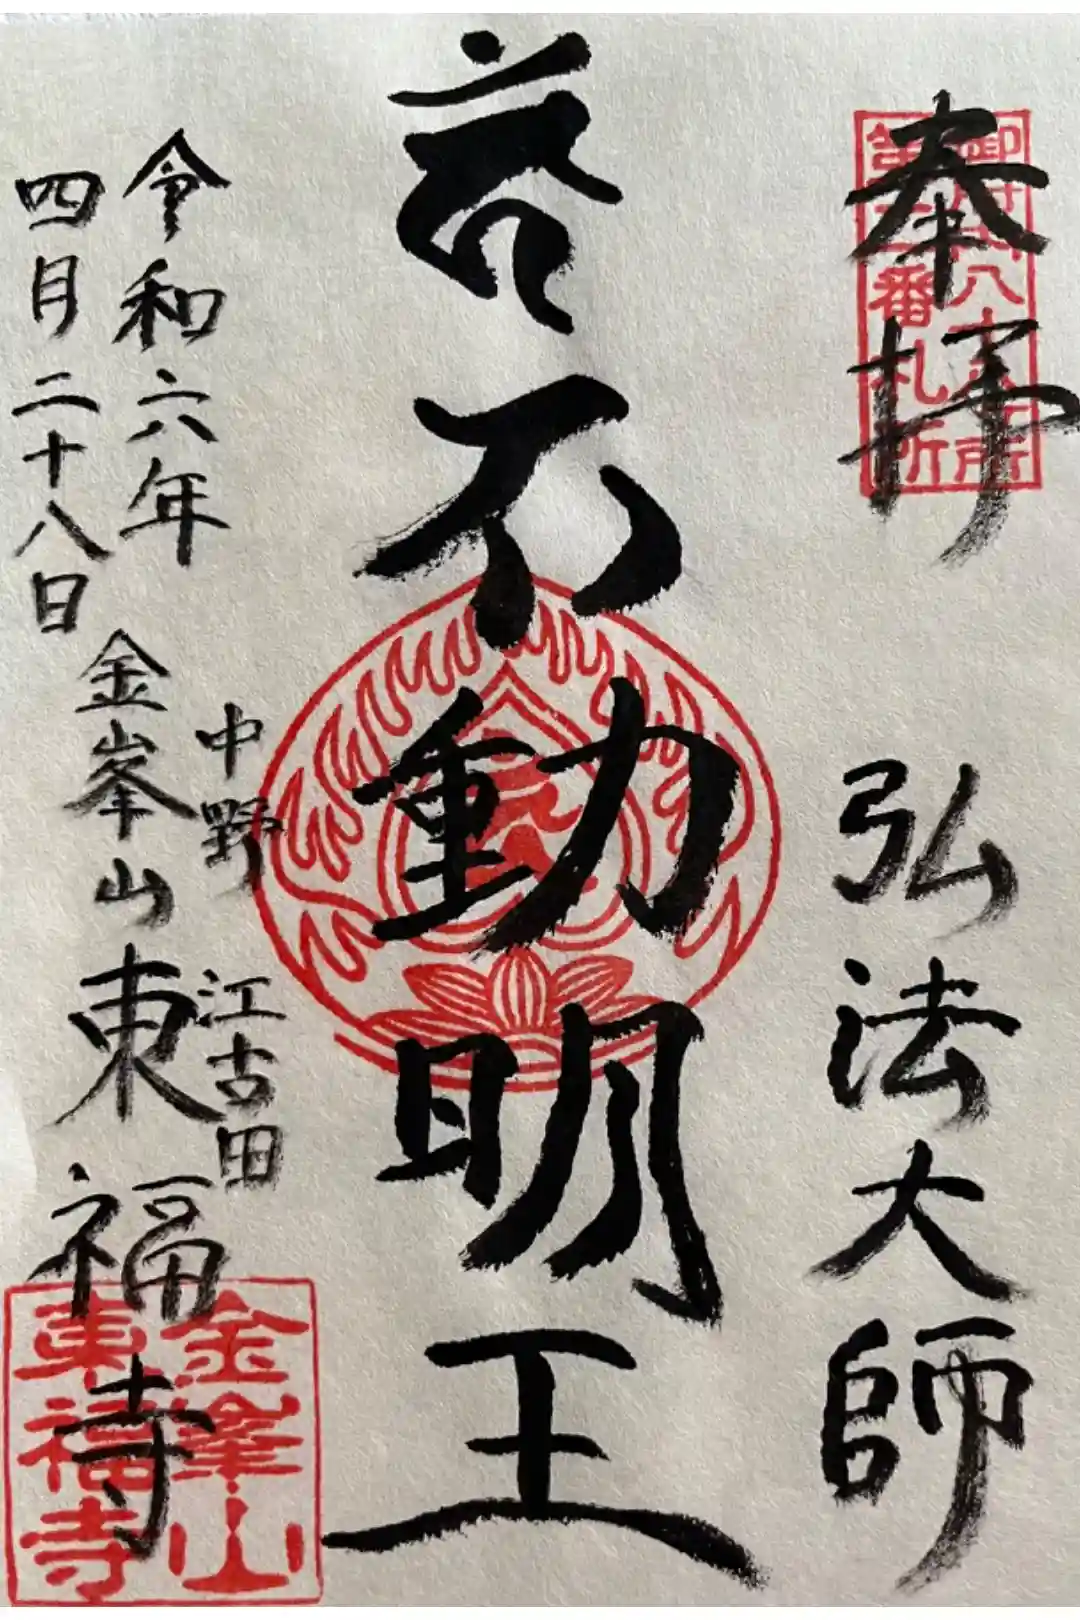 奉拝
弘法大師
不動明王
令和六年
四月二十八日
中野
江古田
金峯山
東福寺
御府内八十八ヶ所
第二番札所
金峯山
東福寺